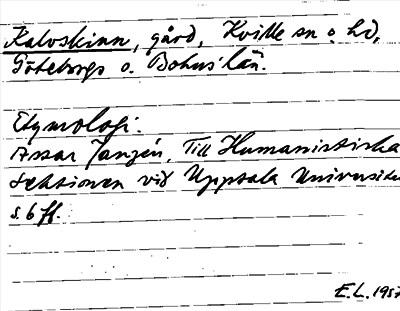 Kalvskinn, gård, Kville sn o. hd,
Göteborgs o. Bohus' län.
Etymologi.
Assar Janzén, Till Humanistiska
sektionen vid Uppsala Universite
s. 6 ff.
E.L. 1957